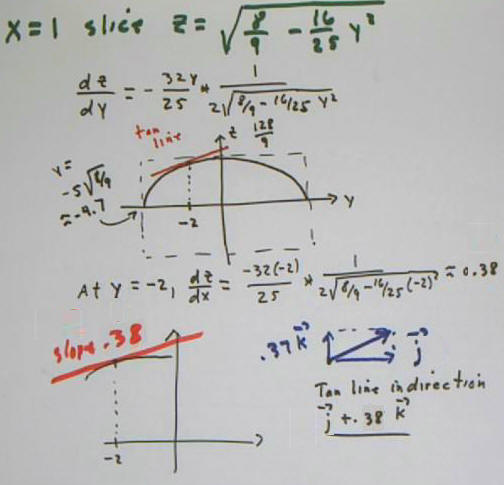 x=1 slice z = √(8/9 - 16/25 y²)
dz/dy = - 32y/25 * 1/(2√(8/9 - 16/25 y²))
tan line
z
128/9
y= -5√(8/9) ≈ -4.7
y
-2
At y = -2, dz/dx = -32(-2)/25 * 1/(2√(8/9 - 16/25 (-2)²)) ≈ 0.38
slope .38
-2
.37 k⃗
j⃗
Tan line in direction
j⃗ + .38 k⃗